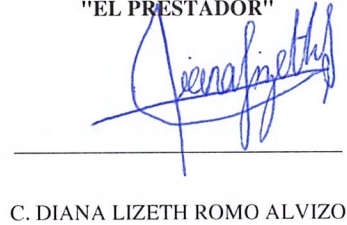 "EL PRESTADOR"
Dianalizeth
C. DIANA LIZETH ROMO ALVIZO